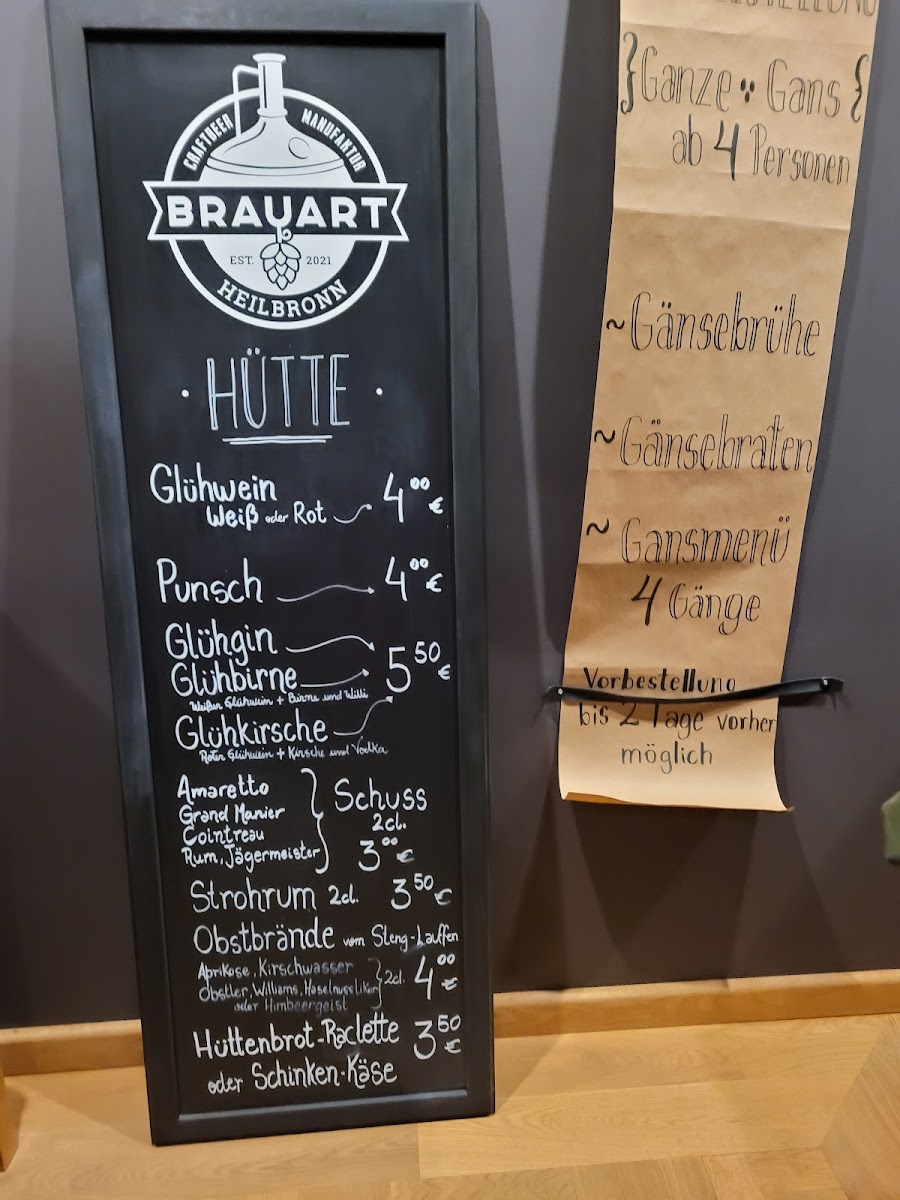 CRAFTBEER MANUFAKTUR
BRAUART
EST. 2021
HEILBRONN
· HÜTTE ·
Glühwein
Weiß oder Rot 4⁰⁰ €
Punsch 4⁰⁰ €
Glühgin
Glühbirne 5⁵⁰ €
Weißer Glühwein + Birne und Willi
Glühkirsche
Roter Glühwein + Kirsche und Vodka
Amaretto
Grand Manier
Cointreau
Rum, Jägermeister
Schuss
2cl.
3⁰⁰ €
Strohrum 2cl. 3⁵⁰ €
Obstbrände vom Steng-Lauffen
Aprikose, Kirschwasser
Obstler, Williams, Haselnusslikör
oder Himbeergeist
2cl. 4⁰⁰ €
Hüttenbrot-Raclette 3⁵⁰ €
oder Schinken-Käse
}Ganze Gans{
ab 4 Personen
~Gänsebrühe
~Gänsebraten
~Gansmenü
4 Gänge
Vorbestellung
bis 2 Tage vorher
möglich